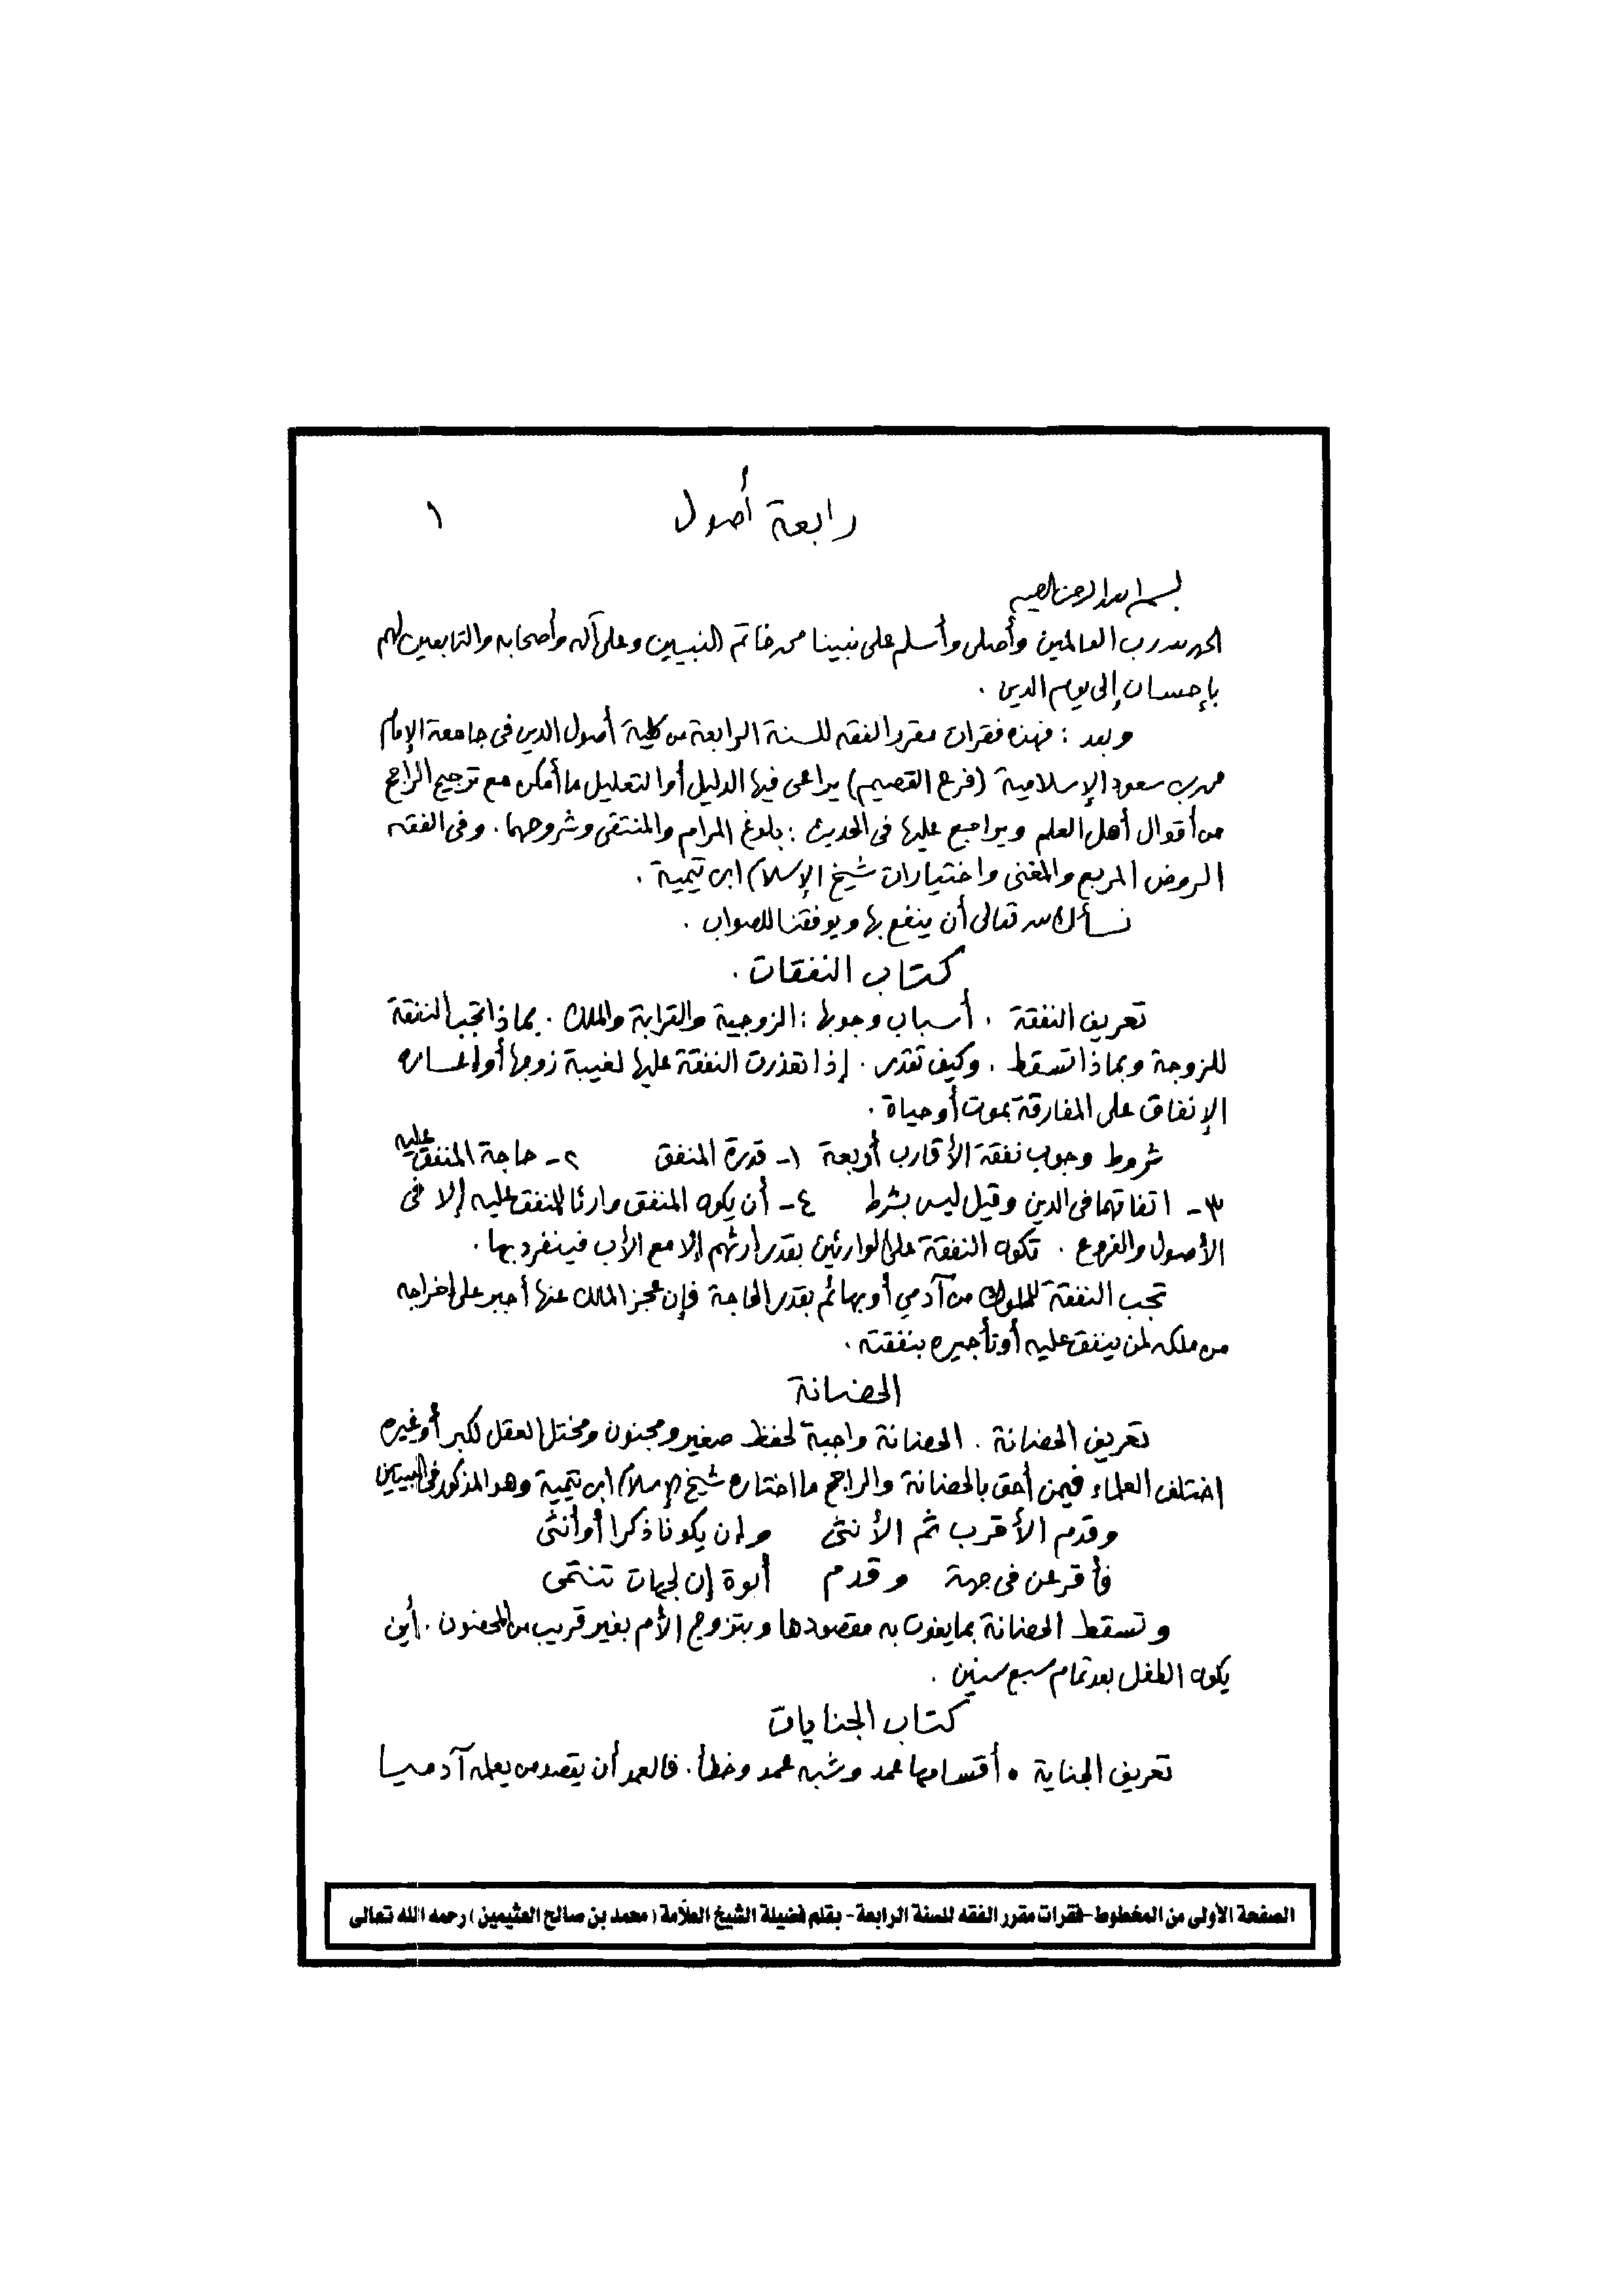 رابعة أصول
١
بسم الله الرحمن الرحيم
الحمد لله رب العالمين وأصلي وأسلم على نبينا محمد خاتم النبيين وعلى آله وأصحابه والتابعين لهم
بإحسان إلى يوم الدين .
وبعد : فهذه فقرات مقرر الفقه للسنة الرابعة من كلية أصول الدين في جامعة الإمام
محمد بن سعود الإسلامية (فرع القصيم) يراعى فيها الدليل أو التعليل ما أمكن مع ترجيح الراجح
من أقوال أهل العلم ويراجع عليها في الحديث : بلوغ المرام والمنتقى وشروحهما . وفي الفقه
الروض المربع والمغني واختيارات شيخ الإسلام ابن تيمية .
نسأل الله تعالى أن ينفع بها ويوفقنا للصواب .
كتاب النفقات .
تعريف النفقة . أسباب وجوبها : الزوجية والقرابة والملك . بماذا تجب النفقة
للزوجة وبماذا تسقط . وكيف تقدر . إذا تعذرت النفقة عليها لغيبة زوجها أو إعساره
الإنفاق على المفارقة بموت أو حياة .
شروط وجوب نفقة الأقارب أربعة ١- قدرة المنفق ٢- حاجة المنفق عليه
٣- اتفاقهما في الدين وقيل ليس بشرط ٤- أن يكون المنفق وارثا للمنفق عليه إلا في
الأصول والفروع . تكون النفقة على الوارثين بقدر إرثهم إلا مع الأب فينفرد بها .
تجب النفقة للملوك من آدمي أو بهائم بقدر الحاجة فإن عجز المالك عنها أجبر على إخراجه
من ملكه لمن ينفق عليه أو تأجيره بنفقته .
الحضانة
تعريف الحضانة . الحضانة واجبة لحفظ صغير ومجنون ومختل العقل لكبر أو غيره
اختلف العلماء فيمن أحق بالحضانة والراجح ما اختاره شيخ الإسلام ابن تيمية وهو المذكور في البيتين
وقدم الأقرب ثم الأنثى وإن يكونا ذكرا أو أنثى
فأقرعن في جهة وقدم أبوة إن لجهات تنتمي
وتسقط الحضانة بما يفوت به مقصودها وبتزوج الأم بغير قريب من المحضون . أين
يكون الطفل بعد تمام سبع سنين .
كتاب الجنايات
تعريف الجناية . أقسامها عمد وشبه عمد وخطأ . فالعمد أن يقصد من يعلمه آدميا
الصفحة الأولى من المخطوط - فقرات مقرر الفقه للسنة الرابعة - بقلم فضيلة الشيخ العلّامة (محمد بن صالح العثيمين) رحمه الله تعالى